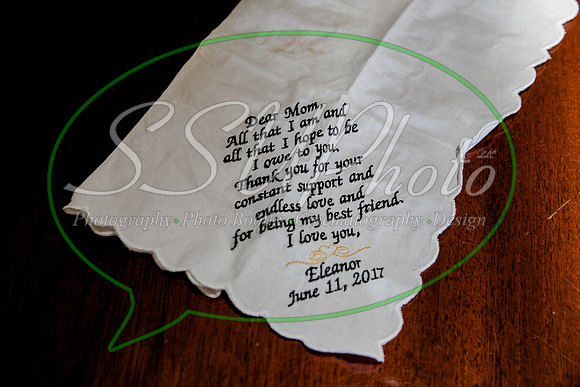 Dear Mom,
All that I am and
all that I hope to be
I owe to you.
Thank you for your
constant support and
endless love and
for being my best friend.
I love you,
Eleanor
June 11, 2017
SSMPhoto
LLC